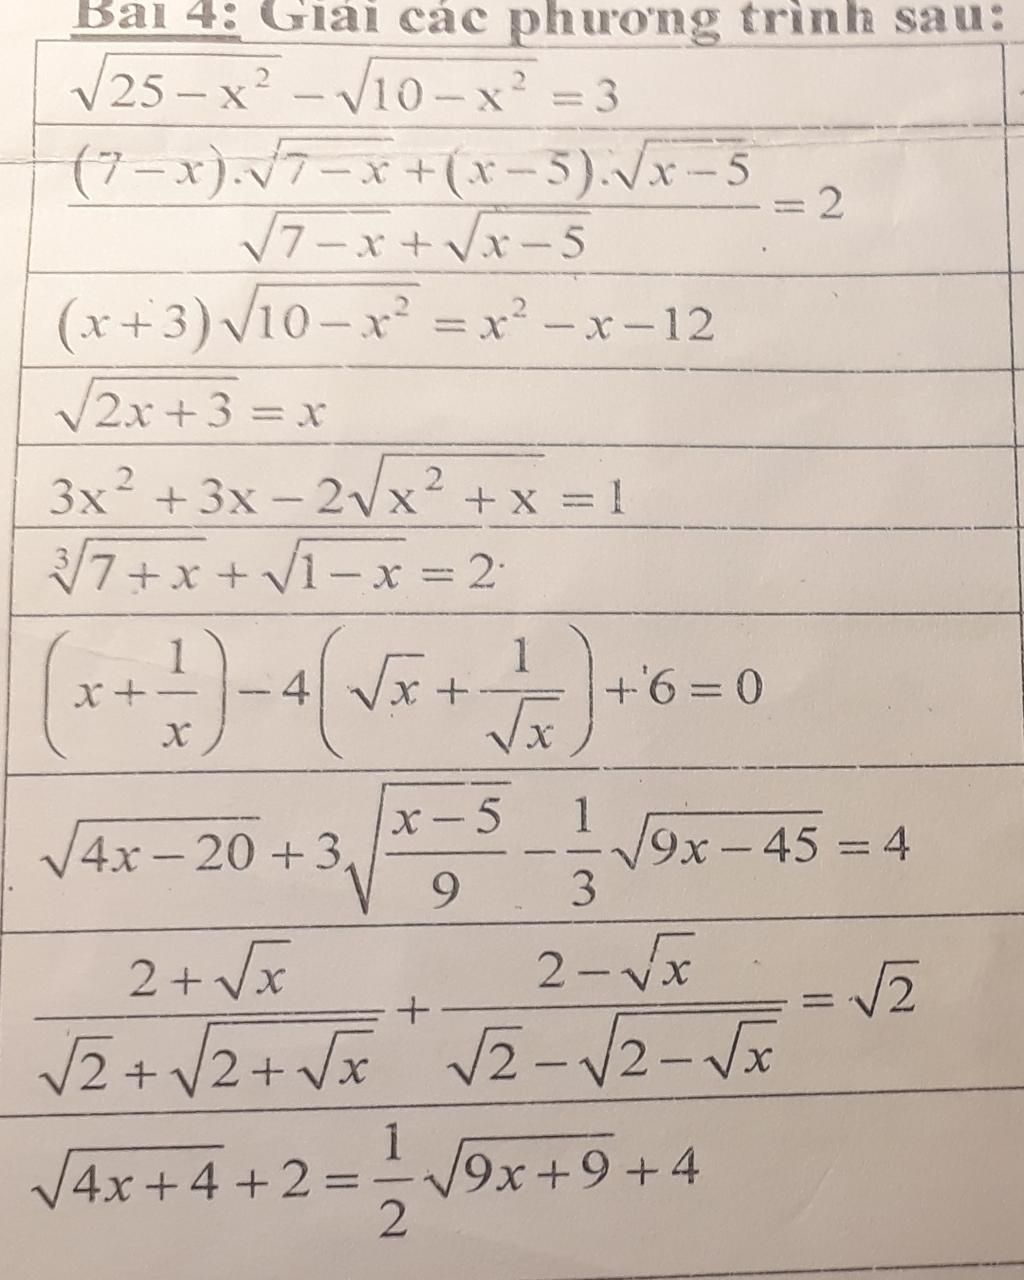 Bài 4: Giải các phương trình sau:
√(25 − x²) − √(10 − x²) = 3
((7 − x).√(7 − x) + (x − 5).√(x − 5)) / (√(7 − x) + √(x − 5)) = 2
(x + 3)√(10 − x²) = x² − x − 12
√(2x + 3) = x
3x² + 3x − 2√(x² + x) = 1
∛(7 + x) + √(1 − x) = 2
(x + 1/x) − 4(√x + 1/√x) + 6 = 0
√(4x − 20) + 3√((x − 5)/9) − 1/3 √(9x − 45) = 4
(2 + √x)/(√2 + √(2 + √x)) + (2 − √x)/(√2 − √(2 − √x)) = √2
√(4x + 4) + 2 = 1/2 √(9x + 9) + 4